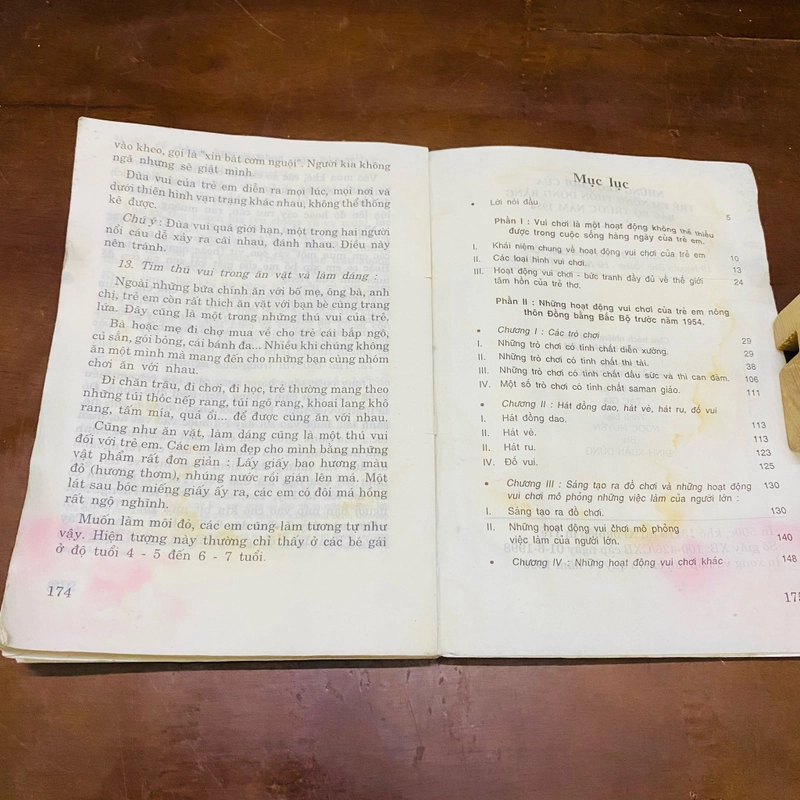 vào kheo, gọi là "xin bát cơm nguội". Người kia không
ngã nhưng sẽ giật mình.
Đùa vui của trẻ em diễn ra mọi lúc, mọi nơi và
dưới thiên hình vạn trạng khác nhau, không thể thống
kê được.
Chú ý : Đùa vui quá giới hạn, một trong hai người
nổi cáu dễ xảy ra cãi nhau, đánh nhau. Điều này
nên tránh.
13. Tìm thú vui trong ăn vặt và làm dáng :
Ngoài những bữa chính ăn với bố mẹ, ông bà, anh
chị, trẻ em còn rất thích ăn vặt với bạn bè cùng trang
lứa. Đây cũng là một trong những thú vui của trẻ.
Bà hoặc mẹ đi chợ mua về cho trẻ cái bắp ngô,
củ sắn, gói bỏng, cái bánh đa... Nhiều khi chúng không
ăn một mình mà mang đến cho những bạn cùng nhóm
chơi ăn với nhau.
Đi chăn trâu, đi chơi, đi học, trẻ thường mang theo
những túi thóc nếp rang, túi ngô rang, khoai lang khô
rang, tấm mía, quả ổi... để được cùng ăn với nhau.
Cũng như ăn vặt, làm dáng cũng là một thú vui
đối với trẻ em. Các em làm đẹp cho mình bằng những
vật phẩm rất đơn giản : Lấy giấy bao hương màu
đỏ (hương thơm), nhúng nước rồi gián lên má. Một
lát sau bóc miếng giấy ấy ra, các em có đôi má hồng
rất ngộ nghĩnh.
Muốn làm môi đỏ, các em cũng làm tương tự như
vậy. Hiện tượng này thường chỉ thấy ở các bé gái
ở độ tuổi 4 - 5 đến 6 - 7 tuổi.
174
Mục lục
• Lời nói đầu 5
Phần I : Vui chơi là một hoạt động không thể thiếu
được trong cuộc sống hàng ngày của trẻ em.
I. Khái niệm chung về hoạt động vui chơi của trẻ em 10
II. Các loại hình vui chơi. 13
III. Hoạt động vui chơi - bức tranh đầy đủ về thế giới 24
tâm hồn của trẻ thơ.
Phần II : Những hoạt động vui chơi của trẻ em nông
thôn Đồng bằng Bắc Bộ trước năm 1954.
• Chương I : Các trò chơi 29
I. Những trò chơi có tính chất diễn xướng. 29
II. Những trò chơi có tính chất thi tài. 38
III. Những trò chơi có tính chất đấu sức và thi can đảm. 106
IV. Một số trò chơi có tính chất saman giáo. 111
• Chương II : Hát đồng dao, hát vè, hát ru, đố vui
I. Hát đồng dao. 113
II. Hát vè. 113
III. Hát ru. 123
IV. Đố vui. 125
• Chương III : Sáng tạo ra đồ chơi và những hoạt động 130
vui chơi mô phỏng những việc làm của người lớn :
I. Sáng tạo ra đồ chơi. 130
II. Những hoạt động vui chơi mô phỏng
việc làm của người lớn. 140
• Chương IV : Những hoạt động vui chơi khác 148